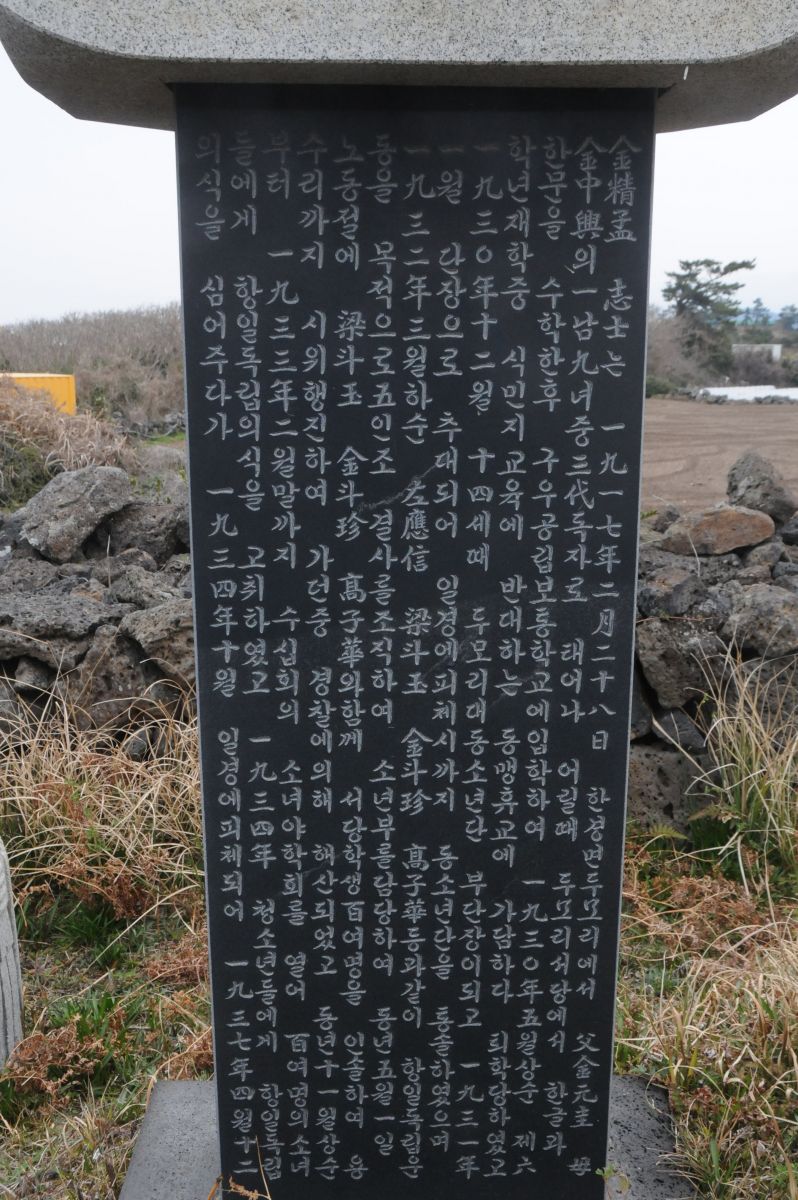 金精孟 志士는 一九一七年二月二十八日 한경면두모리에서 父金元圭 母
金中興의一남九녀중三代독자로 태어나 어릴때 두모리서당에서 한글과
한문을 수학한후 구우공립보통학교에입학하여 一九三○年五월상순 제六
학년재학중 식민지교육에 반대하는 동맹휴교에 가담하다 퇴학당하였고
一九三○年十二월 十四세때 두모리대동소년단 부단장이되고 一九三一年
一월 단장으로 추대되어 일경에피체시까지 동소년단을 통솔하였으며
一九三二年三월하순 左應信 梁斗玉 金斗珍 高子華등과같이 항일독립운
동을 목적으로五인조 결사를조직하여 소년부를담당하여 동년五월一일
노동절에 梁斗玉 金斗珍 高子華와함께 서당학생百여명을 인솔하여 용
수리까지 시위행진하여 가던중 경찰에의해 해산되었고 동년十一월상순
부터 一九三三年二월말까지 수십회의 소녀야학회를 열어 百여명의소녀
들에게 항일독립의식을 고취하였고 一九三四年 청소년들에게 항일독립
의식을 심어주다가 一九三四年十월 일경에피체되어 一九三七年四월十二